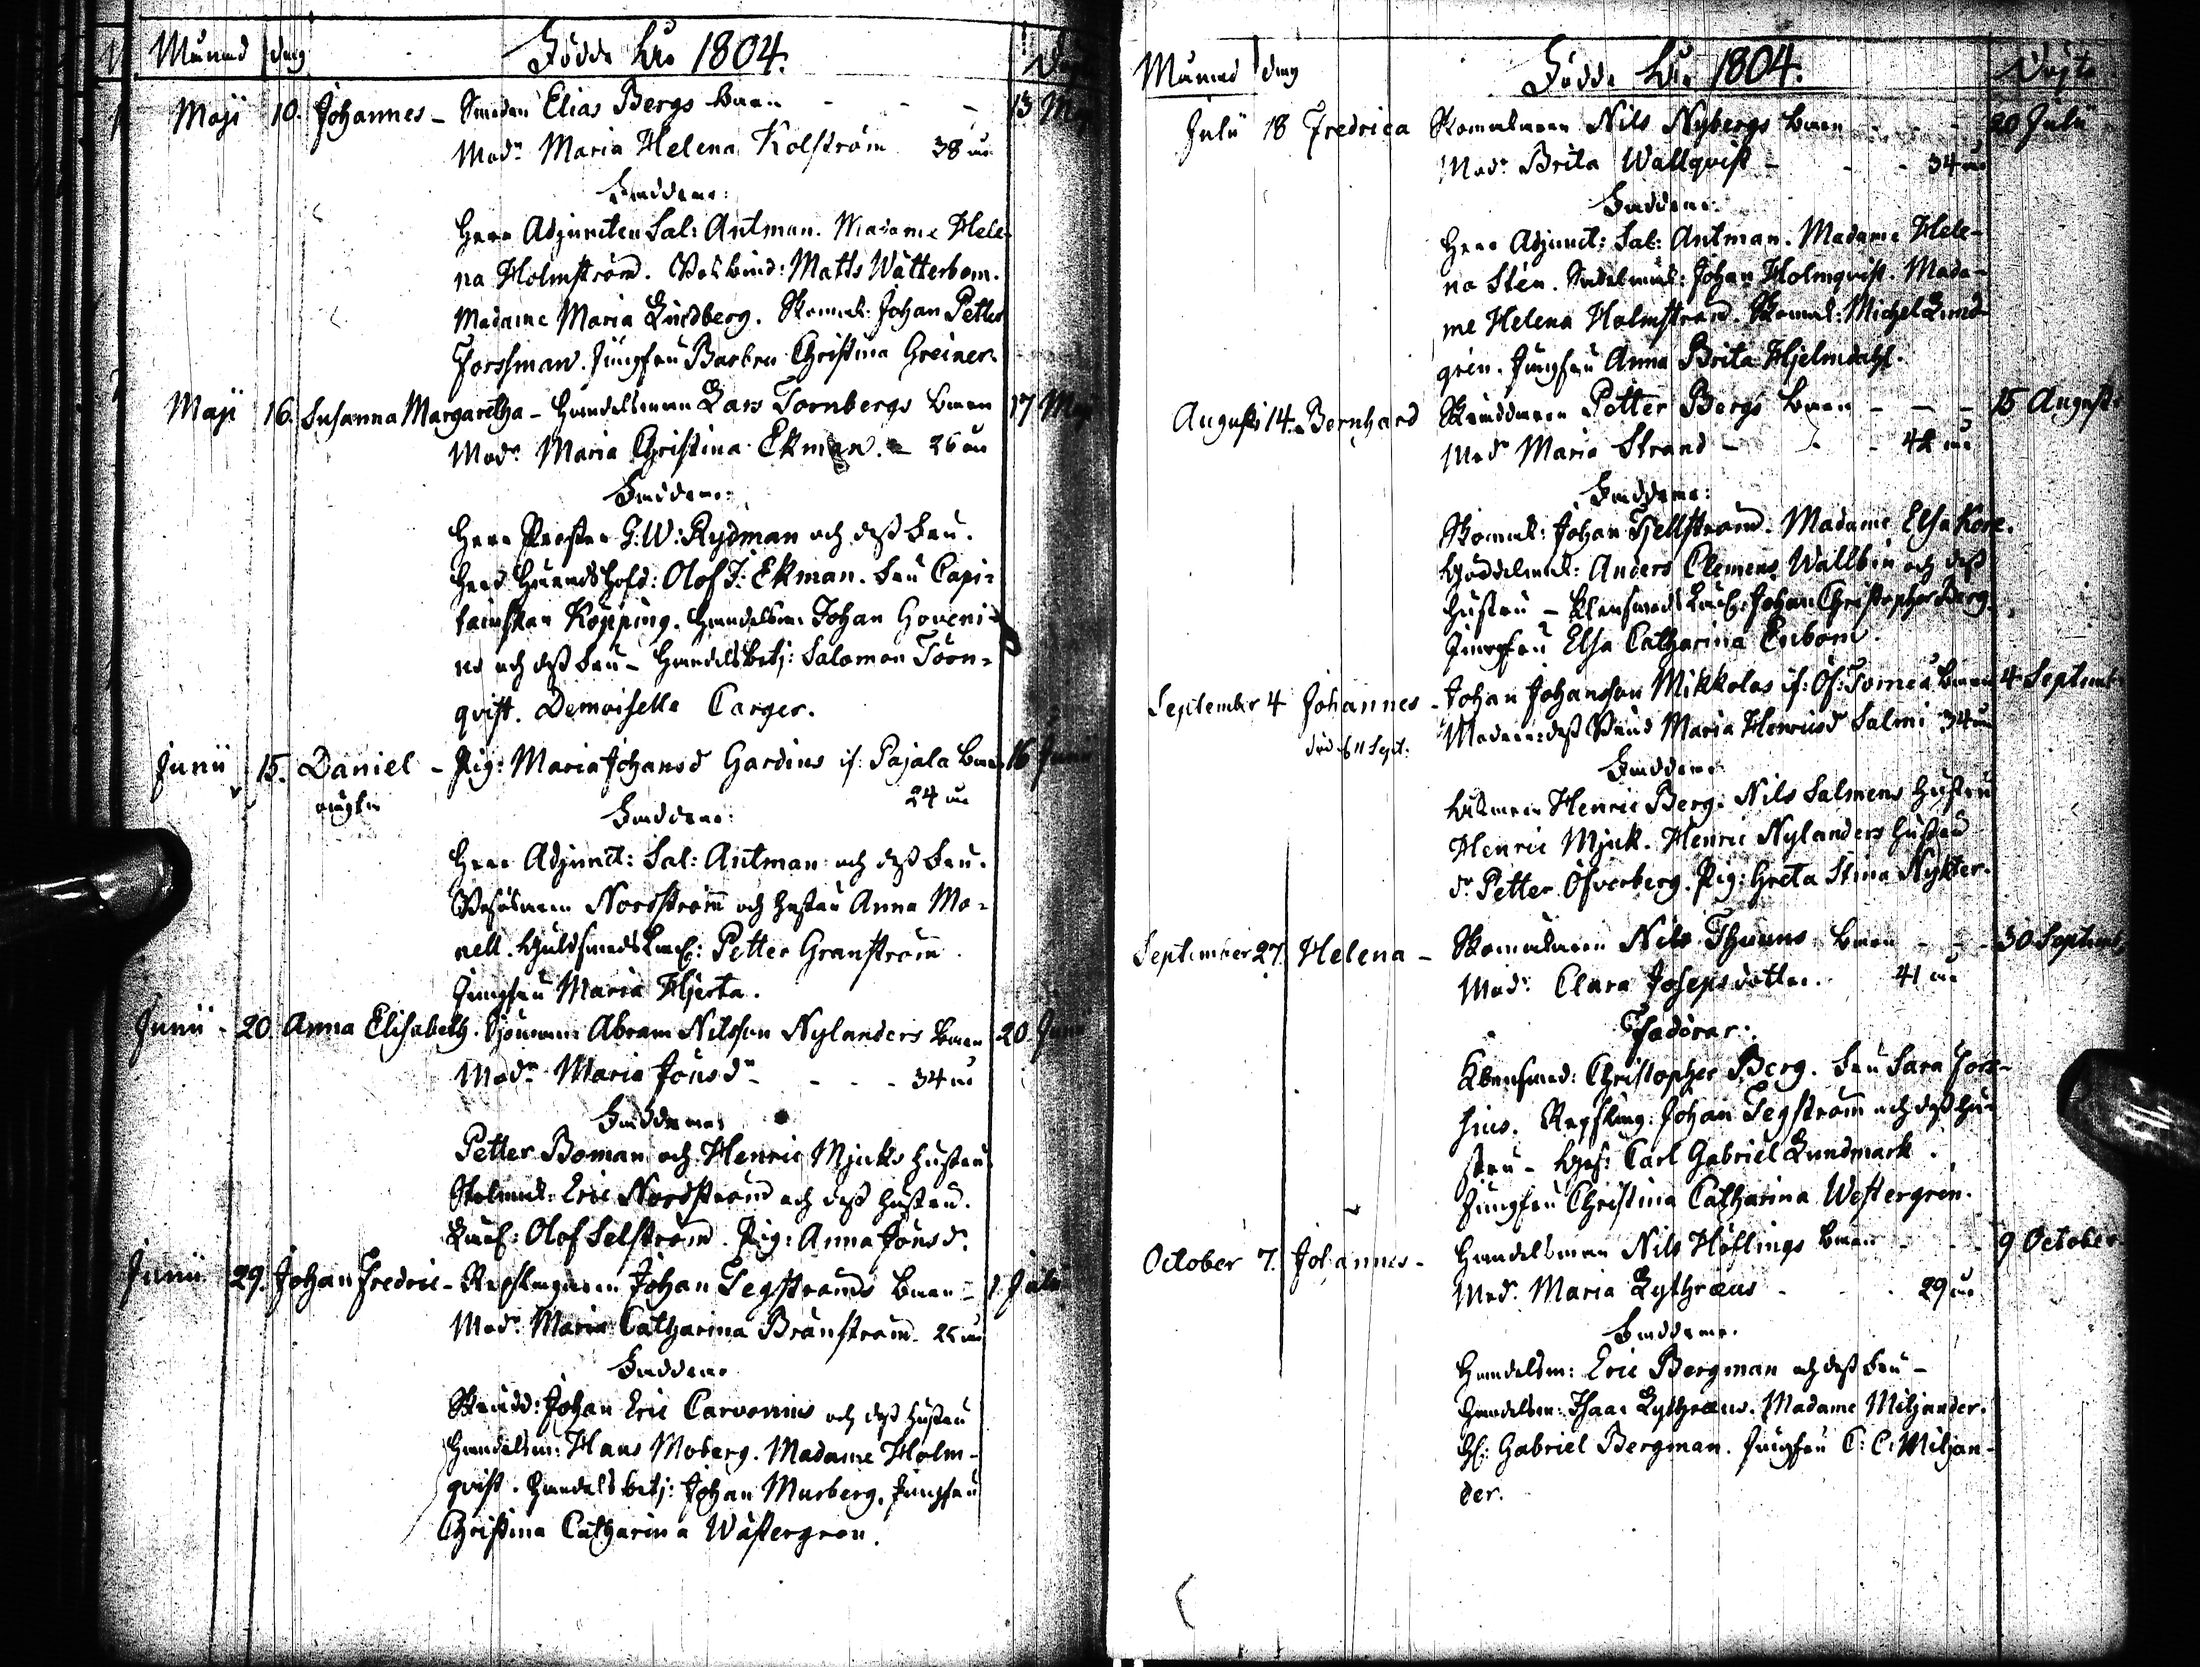 Månad dag Födde År 1804.
Maji 10. Johannes - Smeden Elias Bergs barn - - - 13 Maj
Modr Maria Helena Kolström 38 år
Faddrar:
Herr Adjuncten Sal: Antman. Madame Hele-
na Holmström. Matts Wätterbom.
Madame Maria Lundberg. Skomak: Johan Petter
Forssman. Jungfru Barbru Christina Greiner.
Maji 16. Susanna Margaretha - Handelsman Lars Tornbergs barn 17 Maj
Modr Maria Christina Ekman. - 26 år
Faddrar:
Herr Prosten G: W: Rydman och dess Fru.
Häradshöfd: Olof J: Ekman. Fru Capi-
tainskan Köpping. Handelsm: Johan Goveni-
us och dess Fru - Handelsbetj: Salomon Törn-
qvist. Demoiselle Carger.
Junii 15. Daniel - Pig: Maria Johansd Gardins if: Pajala barn 16 Junii
oägta 24 år
Faddrar:
Herr Adjunct: Sal: Antman och dess Fru.
Nordström och hustru Anna Mo-
nell. Guldsmeds Lärl: Petter Granström.
Jungfru Maria Hjerta.
Junii - 20. Anna Elisabeth. Sjöman Abram Nilsson Nylanders barn 20. Junii
Modr Maria Jönsdr - - - - 34 år
Faddrar:
Petter Boman och Henric Mjuks hustru
Eric Nordström och dess hustru.
Olof Selström. Pig: Anna Jönsd:
Junii 29. Johan Fredric - Repslagaren Johan Tegströms barn - 1 Julii
Modr: Maria Catharina Brunström 25 år
Faddrar
Skrädd: Johan Eric Carvonius och dess hustru
Handelsm: Hans Moberg. Madame Holm-
qvist. Handelsbetj: Johan Murberg. Jungfru
Christina Catharina Wästergren.
Månad dag Födde År 1804. Döpte
Julii 18 Fredrica Skomakaren Nils Nybergs barn - - - 20 Julii
Modr Brita Wallqvist - - - 34 år
Faddrar:
Herr Adjunct: Sal: Antman. Madame Hele-
na Stén. Sadelmak: Johan Holmqvist. Mada-
me Helena Holmström. Skomak: Michel Lund-
grén. Jungfru Anna Brita Hjelmdahl.
Augusti 14. Bernhard Skräddaren Petter Bergs barn - - - 15 Augusti
Modr Maria Strand - - - 42 år
Faddrar:
Skomak: Johan Fjellström. Madame Elsa Kore.
Anders Clemens Wallbin och dess
hustru - Johan Christopher Berg.
Jungfru Elsa Catharina Enbom.
September 4 Johannes - Johan Johansson Mikkolas if: Öf: Torneå barn 4 Septemb
död d 11 Sept. Modren: dess Maria Henricsd Salmi 34 år
Faddrar
Henric Berg. Nils Salmens hustru
Henric Mjuk. Henric Nylanders hustru
dr Petter Öfverberg. Pig: Greta Stina Nykter.
September 27. Helena - Skomakaren Nils Thuuns barn - - - 30 Septemb
Modr: Clara Josepsdotter. 41 år
Fadörar:
Christopher Berg. Fru Sara Fors-
sius. Repslag: Johan Tegström och dess hu-
stru - Carl Gabriel Lundmark.
Jungfru Christina Catharina Westergren.
October 7. Johannes - Handelsman Nils Höflings barn - - - 9 October
Modr: Maria Lythræus - - - 29 år
Faddrar.
Handelsm: Eric Bergman och dess Fru -
Handelsm: Isaac Lythræus. Madame Miljander.
Gabriel Bergman. Jungfru C: C: Miljan-
der.